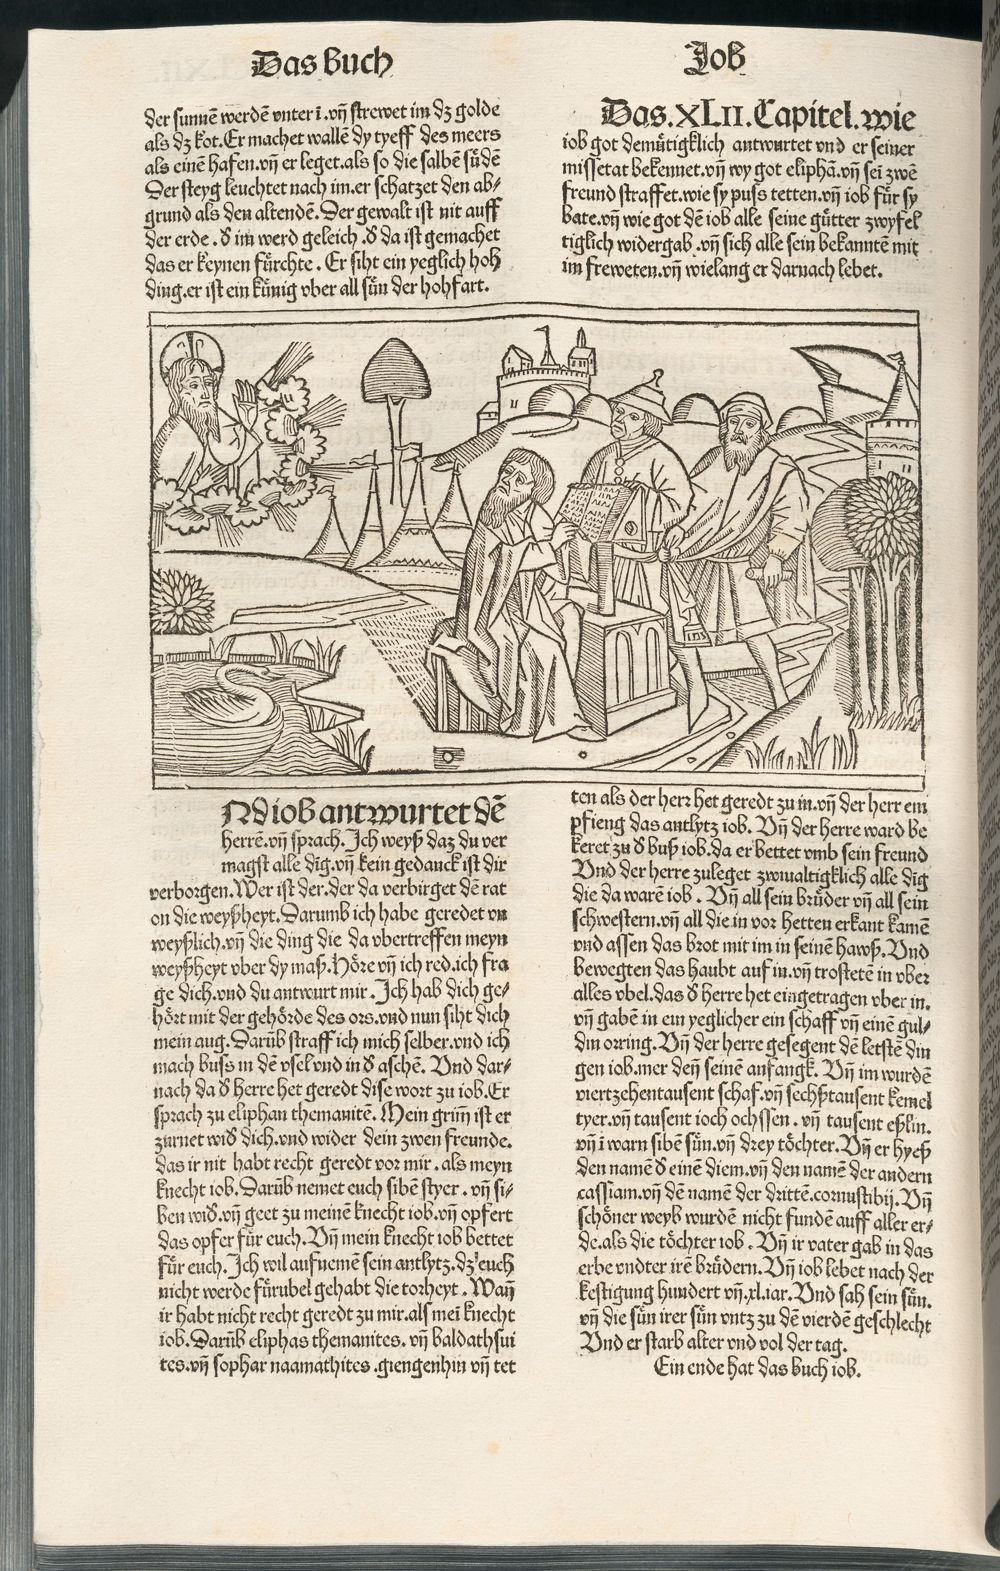 Das buch
Job
der sunnẽ werdẽ vnter ĩ.vñ strewet im dz golde
als dz kot.Er machet wallẽ dy tyeff des meers
als einẽ hafen.vñ er leget.als so die salbẽ sůdẽ
Der steyg leuchtet nach im.er schatzet den ab/
grund als den altendẽ.Der gewalt ist nit auff
der erde.đ im werd geleich.đ da ist gemachet
das er keynen fürchte. Er siht ein yeglich hoh
ding.er ist ein kůnig vber all sůn der hohfart.
Das.XLII.Capitel.wie
iob got demůtigklich antwurtet vnd er seiner
missetat bekennet.vñ wy got eliphã.vñ sei zwẽ
freund straffet.wie sy puſs tetten.vñ iob für sy
bate.vñ wie got dẽ iob alle seine gůtter zwyfel
tiglich widergab.vñ sich alle sein bekanntẽ mit
im freweten.vñ wielang er darnach lebet.
Nd iob antwurtet dẽ
herrẽ.vñ sprach.Ich weyß daz du ver
magst alle dĩg.vñ kein gedanck ist dir
verborgen.Wer ist der.der da verbirget dẽ rat
on die weyßheyt.Darumb ich habe geredet vn
weyßlich.vñ die ding die da vbertreffen meyn
weyßheyt vber dy maß.Hőre vñ ich red.ich fra
ge dich.vnd du antwurt mir.Ich hab dich ge/
hőrt mit der gehőrde des ors.vnd nun siht dich
mein aug.Darũb straff ich mich selber.vnd ich
mach buss in dẽ vsel vnd in đ aschẽ. Vnd dar/
nach da đ herre het geredt dise wort zu iob.Er
sprach zu eliphan themanitẽ.Mein griñ ist er
zurnet wiđ dich.vnd wider dein zwen freunde.
das ir nit habt recht geredt vor mir.als meyn
knecht iob.Darũb nemet euch sibẽ styer.vñ si/
ben wiđ.vñ geet zu meinẽ knecht iob.vñ opfert
das opfer für euch.Vñ mein knecht iob bettet
für euch.Ich wil aufnemẽ sein antlytz.dz euch
nicht werde fürubel gehabt die torheyt.Wañ
ir habt nicht recht geredt zu mir.als mei knecht
iob.Darũb eliphas themanites.vñ baldathsui
tes.vñ sophar naamathites.giengenhin vñ tet
ten als der herr het geredt zu in.vñ der herr em
pfieng das antlytz iob. Vñ der herre ward be
keret zu đ buß iob.da er bettet vmb sein freund
Vnd der herre zuleget zwiualtigklich alle dĩg
die da warẽ iob. Vñ all sein brůder vñ all sein
schwestern.vñ all die in vor hetten erkant kamẽ
vnd assen das brot mit im in seinẽ hawß.Vnd
bewegten das haubt auf in.vñ trostetẽ in vber
alles vbel.das đ herre het eingetragen vber in.
vñ gabẽ in ein yeglicher ein schaff vñ einẽ gul/
din orring.Vñ der herre gesegent dẽ letstẽ din
gen iob.mer deñ seinẽ anfangk. Vñ im wurdẽ
viertzehentausent schaf.vñ sechßtausent kemel
tyer.vñ tausent ioch ochssen.vñ tausent eßlin.
vñ ĩ warn sibẽ sůn.vñ drey tőchter.Vñ er hyeß
den namẽ đ einẽ diem.vñ den namẽ der andern
cassiam.vñ dẽ namẽ der drittẽ.cornustibij.Vñ
schőner weyb wurdẽ nicht fundẽ auff aller er/
de.als die tőchter iob. Vñ ir vater gab in das
erbe vndter irẽ brůdern.Vñ iob lebet nach der
kestigung hundert vñ.xl.iar.Vnd sah sein sůn.
vñ die sůn irer sůn vntz zu dẽ vierdẽ geschlecht
Vnd er starb alter vnd vol der tag.
Ein ende hat das buch iob.